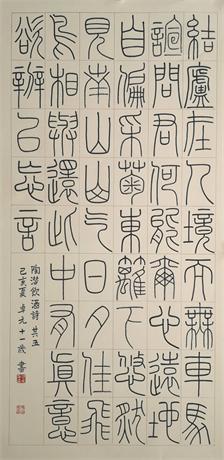 結廬在人境而無車馬
諠問君何能爾心遠地
自偏采菊東籬下悠然
見南山山气日夕佳飛
鳥相與還此中有真意
欲辨已忘言
陶潛飲酒詩 其五
己亥夏 卓九十一歲 書